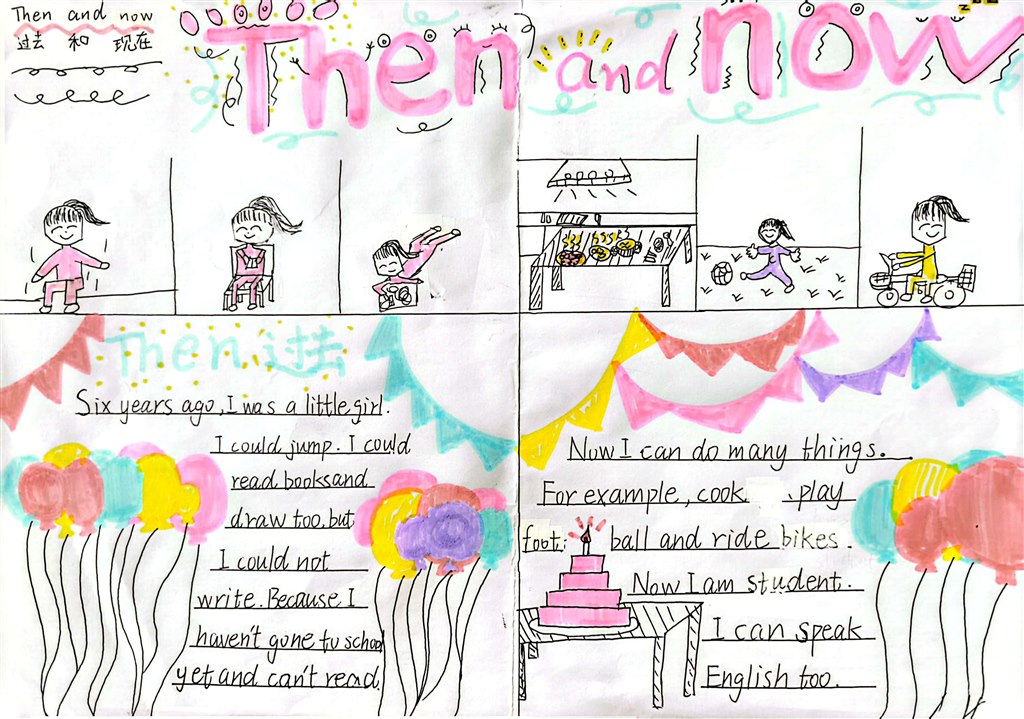 Then and now
过去 和 现在
Then and now
Then 过去
Six years ago, I was a little girl.
I could jump. I could
read booksand
draw too, but
I could not
write. Because I
haven't gone to school
yet and can't read.
Now I can do many things.
For example, cook, play
foot: ball and ride bikes.
Now I am student.
I can speak
English too.